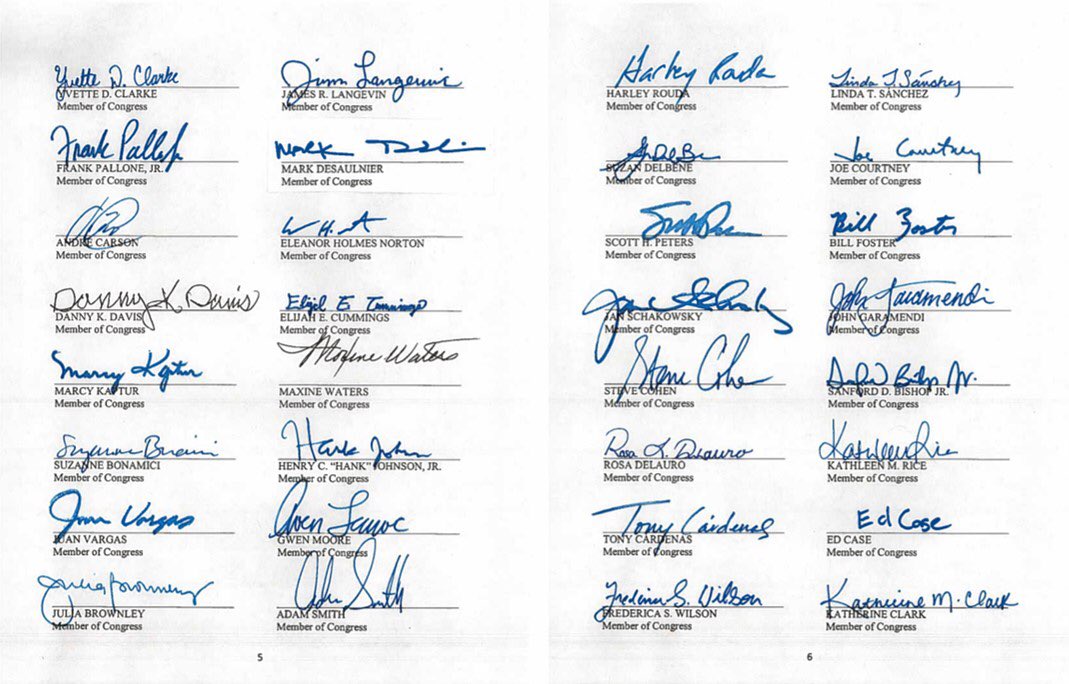 Yvette D. Clarke
YVETTE D. CLARKE
Member of Congress
Jim Langevin
JAMES R. LANGEVIN
Member of Congress
Frank Pallone
FRANK PALLONE, JR.
Member of Congress
Mark
MARK DESAULNIER
Member of Congress
ANDRÉ CARSON
Member of Congress
ELEANOR HOLMES NORTON
Member of Congress
Danny K. Davis
DANNY K. DAVIS
Member of Congress
Elijah E Cummings
ELIJAH E. CUMMINGS
Member of Congress
Marcy Kaptur
MARCY KAPTUR
Member of Congress
Maxine Waters
MAXINE WATERS
Member of Congress
Suzanne Bonamici
SUZANNE BONAMICI
Member of Congress
Hank John
HENRY C. “HANK” JOHNSON, JR.
Member of Congress
Juan Vargas
JUAN VARGAS
Member of Congress
Gwen
GWEN MOORE
Member of Congress
Julia Brownley
JULIA BROWNLEY
Member of Congress
Adam Smith
ADAM SMITH
Member of Congress
5
Harley Rouda
HARLEY ROUDA
Member of Congress
Linda T. Sánchez
LINDA T. SÁNCHEZ
Member of Congress
SUZAN DELBENE
Member of Congress
Joe Courtney
JOE COURTNEY
Member of Congress
SCOTT H. PETERS
Member of Congress
Bill Foster
BILL FOSTER
Member of Congress
Jan Schakowsky
JAN SCHAKOWSKY
Member of Congress
John Garamendi
JOHN GARAMENDI
Member of Congress
Steve Cohen
STEVE COHEN
Member of Congress
SANFORD D. BISHOP JR.
Member of Congress
Rosa L. DeLauro
ROSA DELAURO
Member of Congress
Kathleen Rice
KATHLEEN M. RICE
Member of Congress
Tony Cárdenas
TONY CÁRDENAS
Member of Congress
Ed Case
ED CASE
Member of Congress
Frederica S. Wilson
FREDERICA S. WILSON
Member of Congress
Katherine M. Clark
KATHERINE CLARK
Member of Congress
6